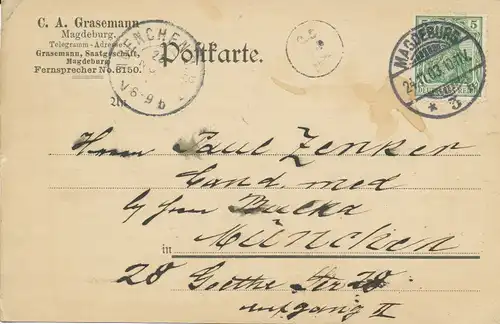 C. A. Grasemann
Magdeburg.
Telegramm-Adresse
Grasemann, Saatgeschäft,
Magdeburg
Fernsprecher No. 6150.
MÜNCHEN
V 6-9 b
Postkarte.
MAGDEBURG
5
24.11.03.
* 3
An
Herrn Paul Zenker
Cand. med
b/ Frau Bucka
in München
28 Goethe Str 28
Aufgang II